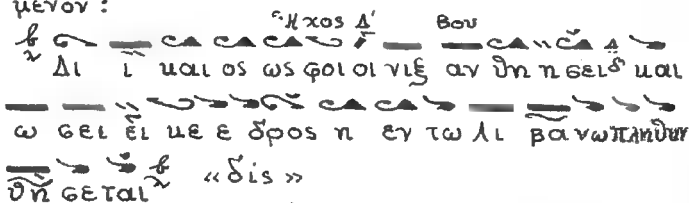 μενον:
Ἦχος Δ' Βου
Δι ι και ος ως φοι οι νιξ αν θη η σει και
ω σει ει κε ε δρος η εν τω Λι βα νω πλη θυν
θη σε ται «δίς»